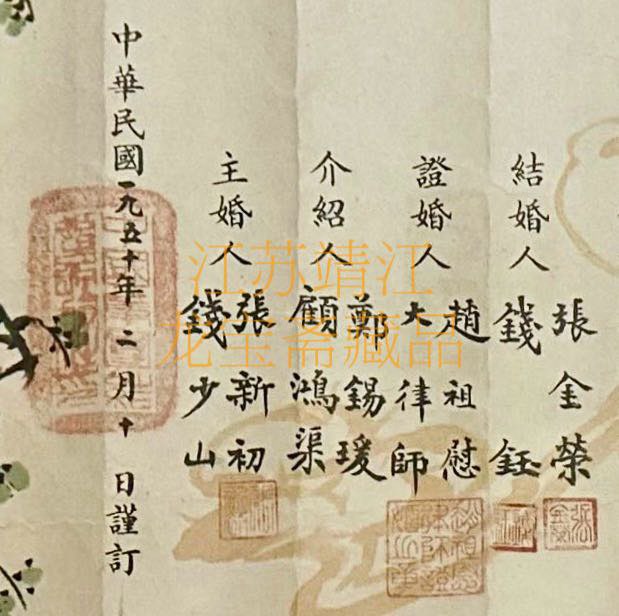 結婚人 張金榮
錢鈺
證婚人 趙祖慰
大律師
介紹人 鄭錫瑗
顧鴻渠
主婚人 張新初
錢少山
中華民國一九五十年二月十日謹訂
江苏靖江
龙宝斋藏品